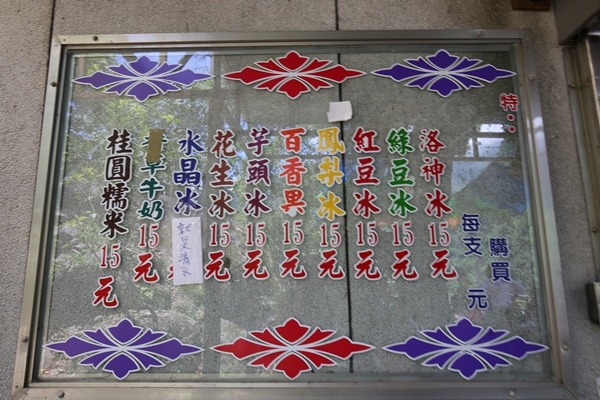 特：
購買
每支 元
洛神冰15元
綠豆冰15元
紅豆冰15元
鳳梨冰15元
百香果15元
芋頭冰15元
花生冰15元
水晶冰
就是清冰
牛奶15元
桂圓糯米15元